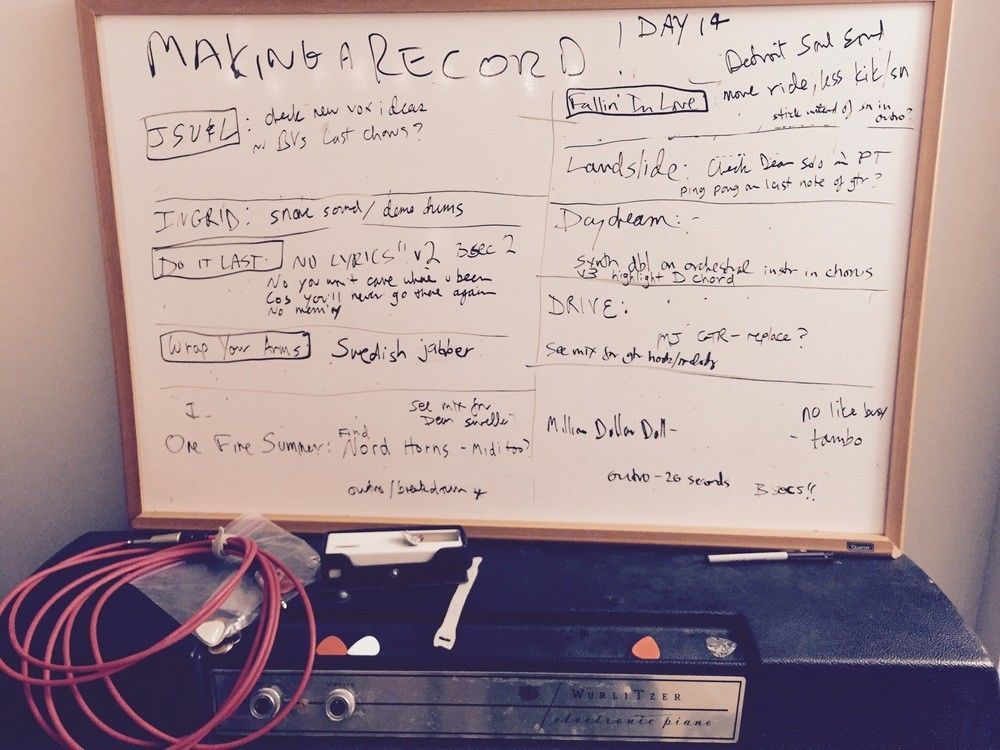 MAKING A RECORD! DAY 14
JSU&L: check new vox ideas
BVs last chorus?
INGRID: snare sound/demo drums
DO IT LAST: NO LYRICS" v2 3sec 2
No you won't care where u been
Cos you'll never go there again
No memory
Wrap Your Arms Swedish jabber
I -
see mix for
Dean
Find
One Fine Summer: Nord Horns - Midi too?
outro/breakdown
Detroit Soul Sound
Fallin' In Love more ride, less kit/sn
stick instead of sn in
outro?
Landslide: Check Dean solo in PT
ping pong on last note of gtr?
Daydream:-
synth dbl on orchestral instr in chorus
v3 highlight D chord
DRIVE:
MJ GTR - replace?
See mix for gtr hook/melody
no like busy
Million Dollar Doll - - tambo
outro - 20 seconds 3 secs!!
Quartet
VIBRATO
WURLITZER
electronic piano